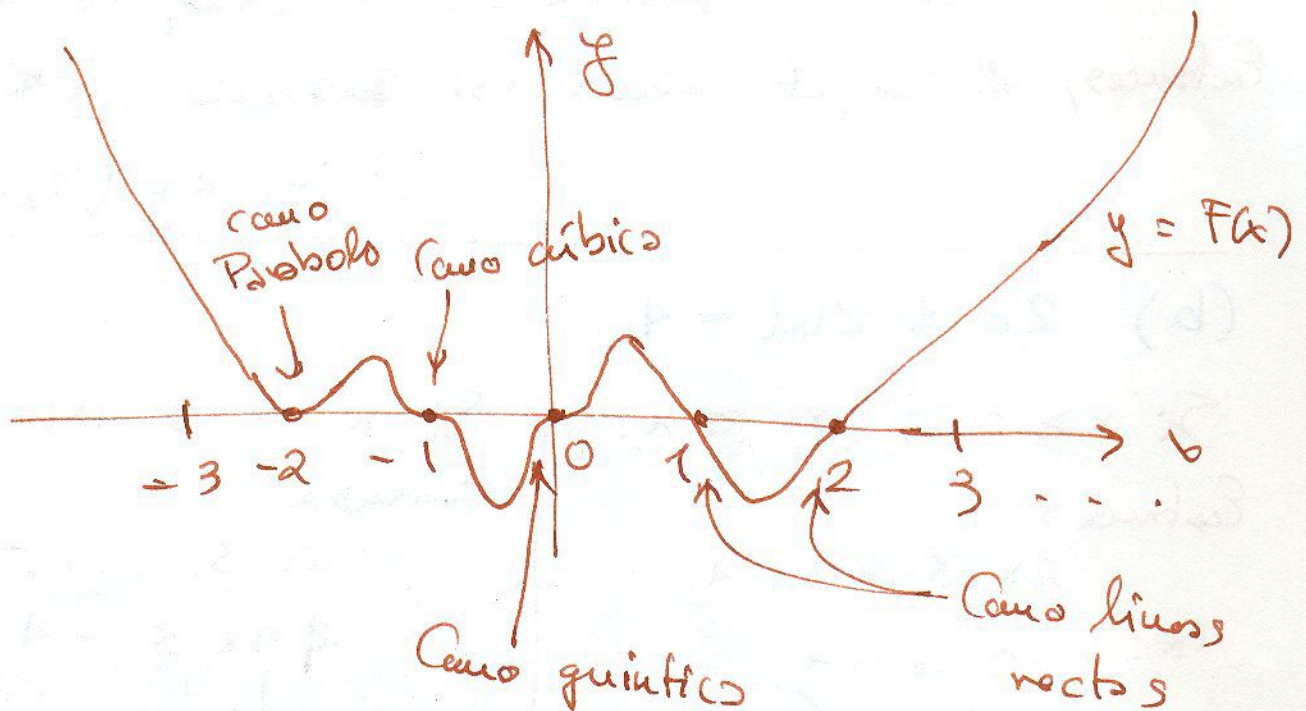 y
y = F(x)
como
Parábola
Como cúbica
-3 -2 -1 0 1 2 3 . . .
Como quíntica
Como líneas
rectas
(b)